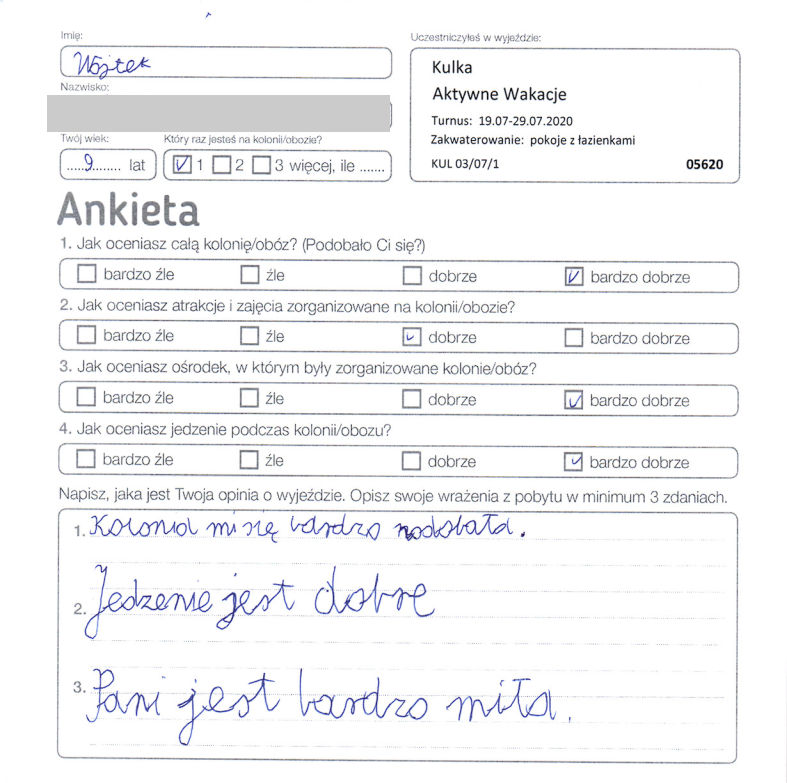 Imię:
Wojtek
Nazwisko:
Twój wiek:
Który raz jesteś na kolonii/obozie?
.....9........ lat
1 2 3 więcej, ile .......
Uczestniczyłeś w wyjeździe:
Kulka
Aktywne Wakacje
Turnus: 19.07-29.07.2020
Zakwaterowanie: pokoje z łazienkami
KUL 03/07/1 05620
Ankieta
1. Jak oceniasz całą kolonię/obóz? (Podobało Ci się?)
bardzo źle źle dobrze bardzo dobrze
2. Jak oceniasz atrakcje i zajęcia zorganizowane na kolonii/obozie?
bardzo źle źle dobrze bardzo dobrze
3. Jak oceniasz ośrodek, w którym były zorganizowane kolonie/obóz?
bardzo źle źle dobrze bardzo dobrze
4. Jak oceniasz jedzenie podczas kolonii/obozu?
bardzo źle źle dobrze bardzo dobrze
Napisz, jaka jest Twoja opinia o wyjeździe. Opisz swoje wrażenia z pobytu w minimum 3 zdaniach.
1. Kolonia mi się bardzo podobała.
2. Jedzenie jest dobre
3. Pani jest bardzo miła.